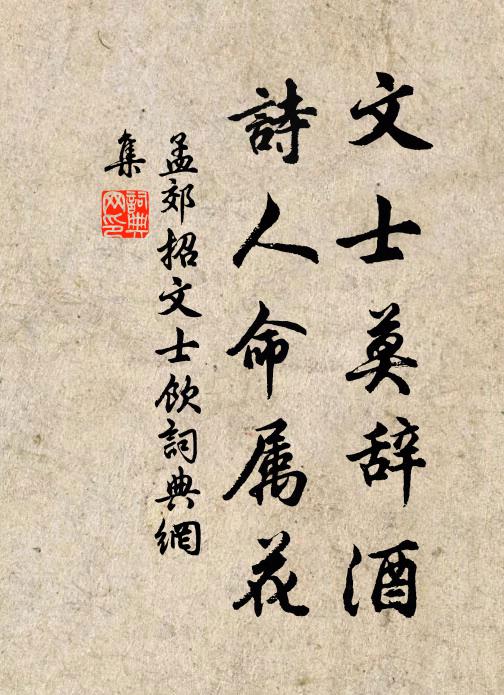 文士莫辞酒
詩人命属花
孟郊招文士飲詞典網
集
詞典
网印